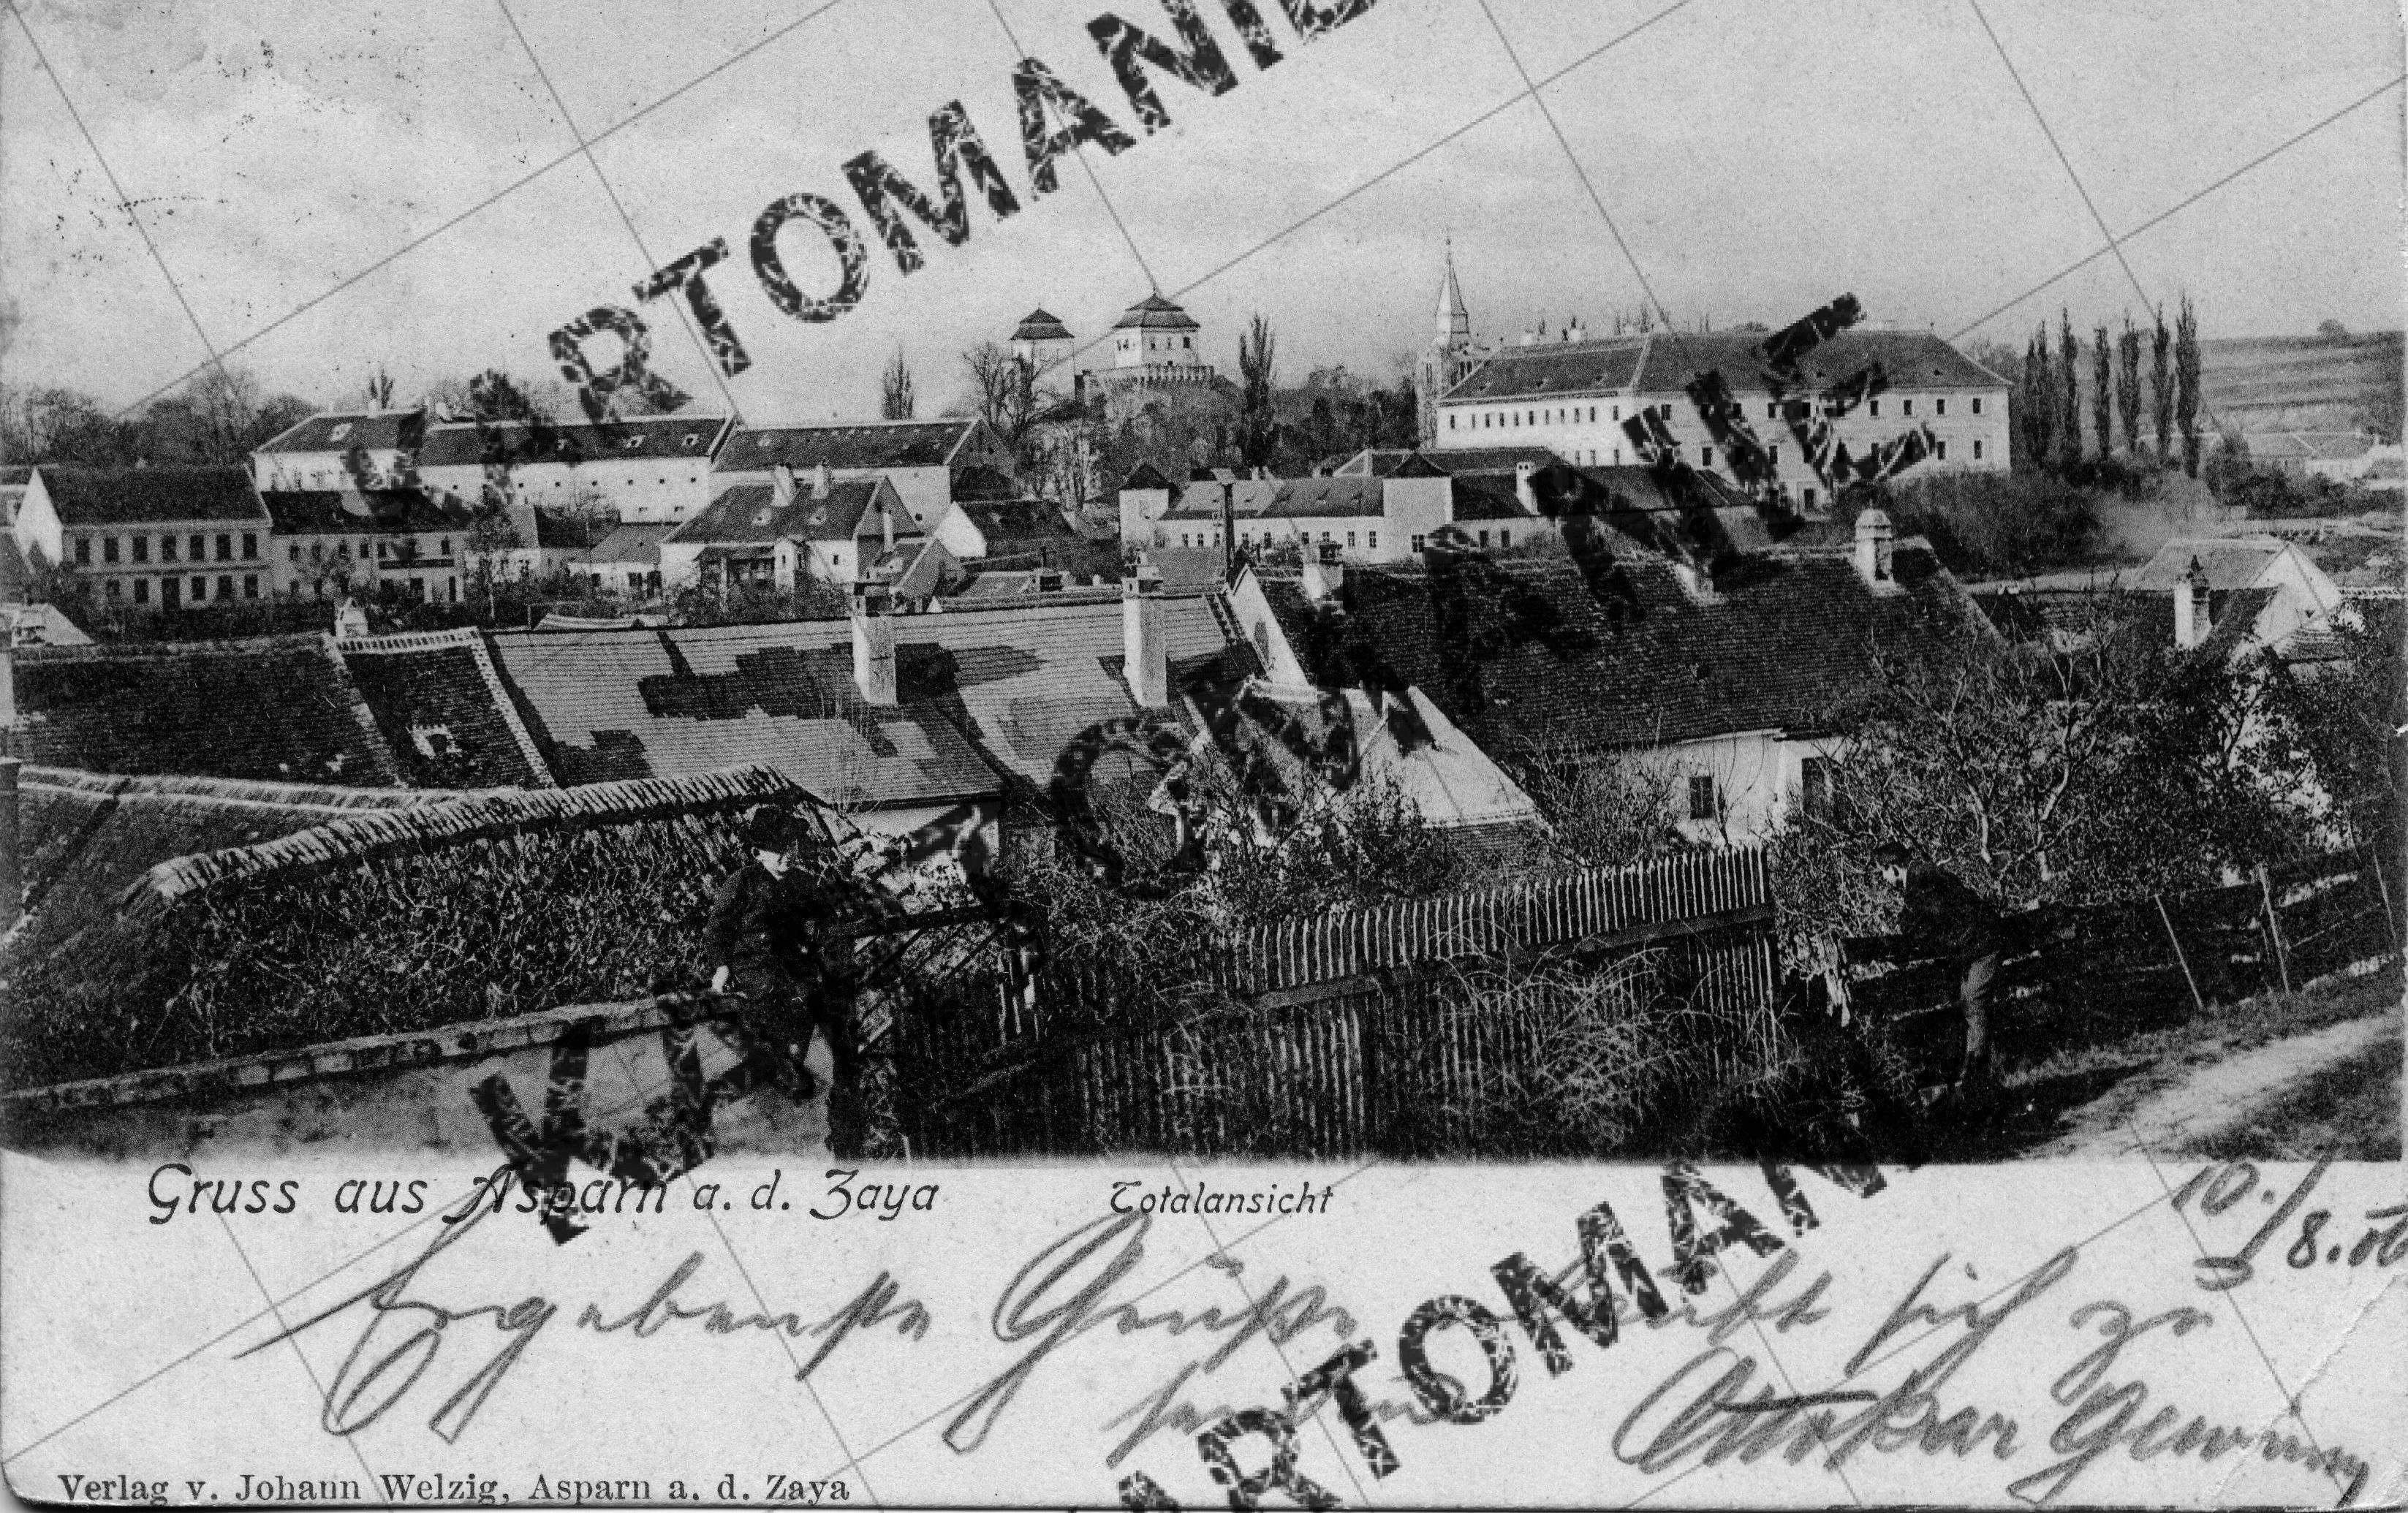 KARTOMANIE
KARTOMANIE
Gruss aus Asparn a. d. Zaya
Totalansicht
10./8. 06
Ergebenste Grüße erlaubt sich zu
senden Ottokar
KARTOMANIE
Verlag v. Johann Welzig, Asparn a. d. Zaya